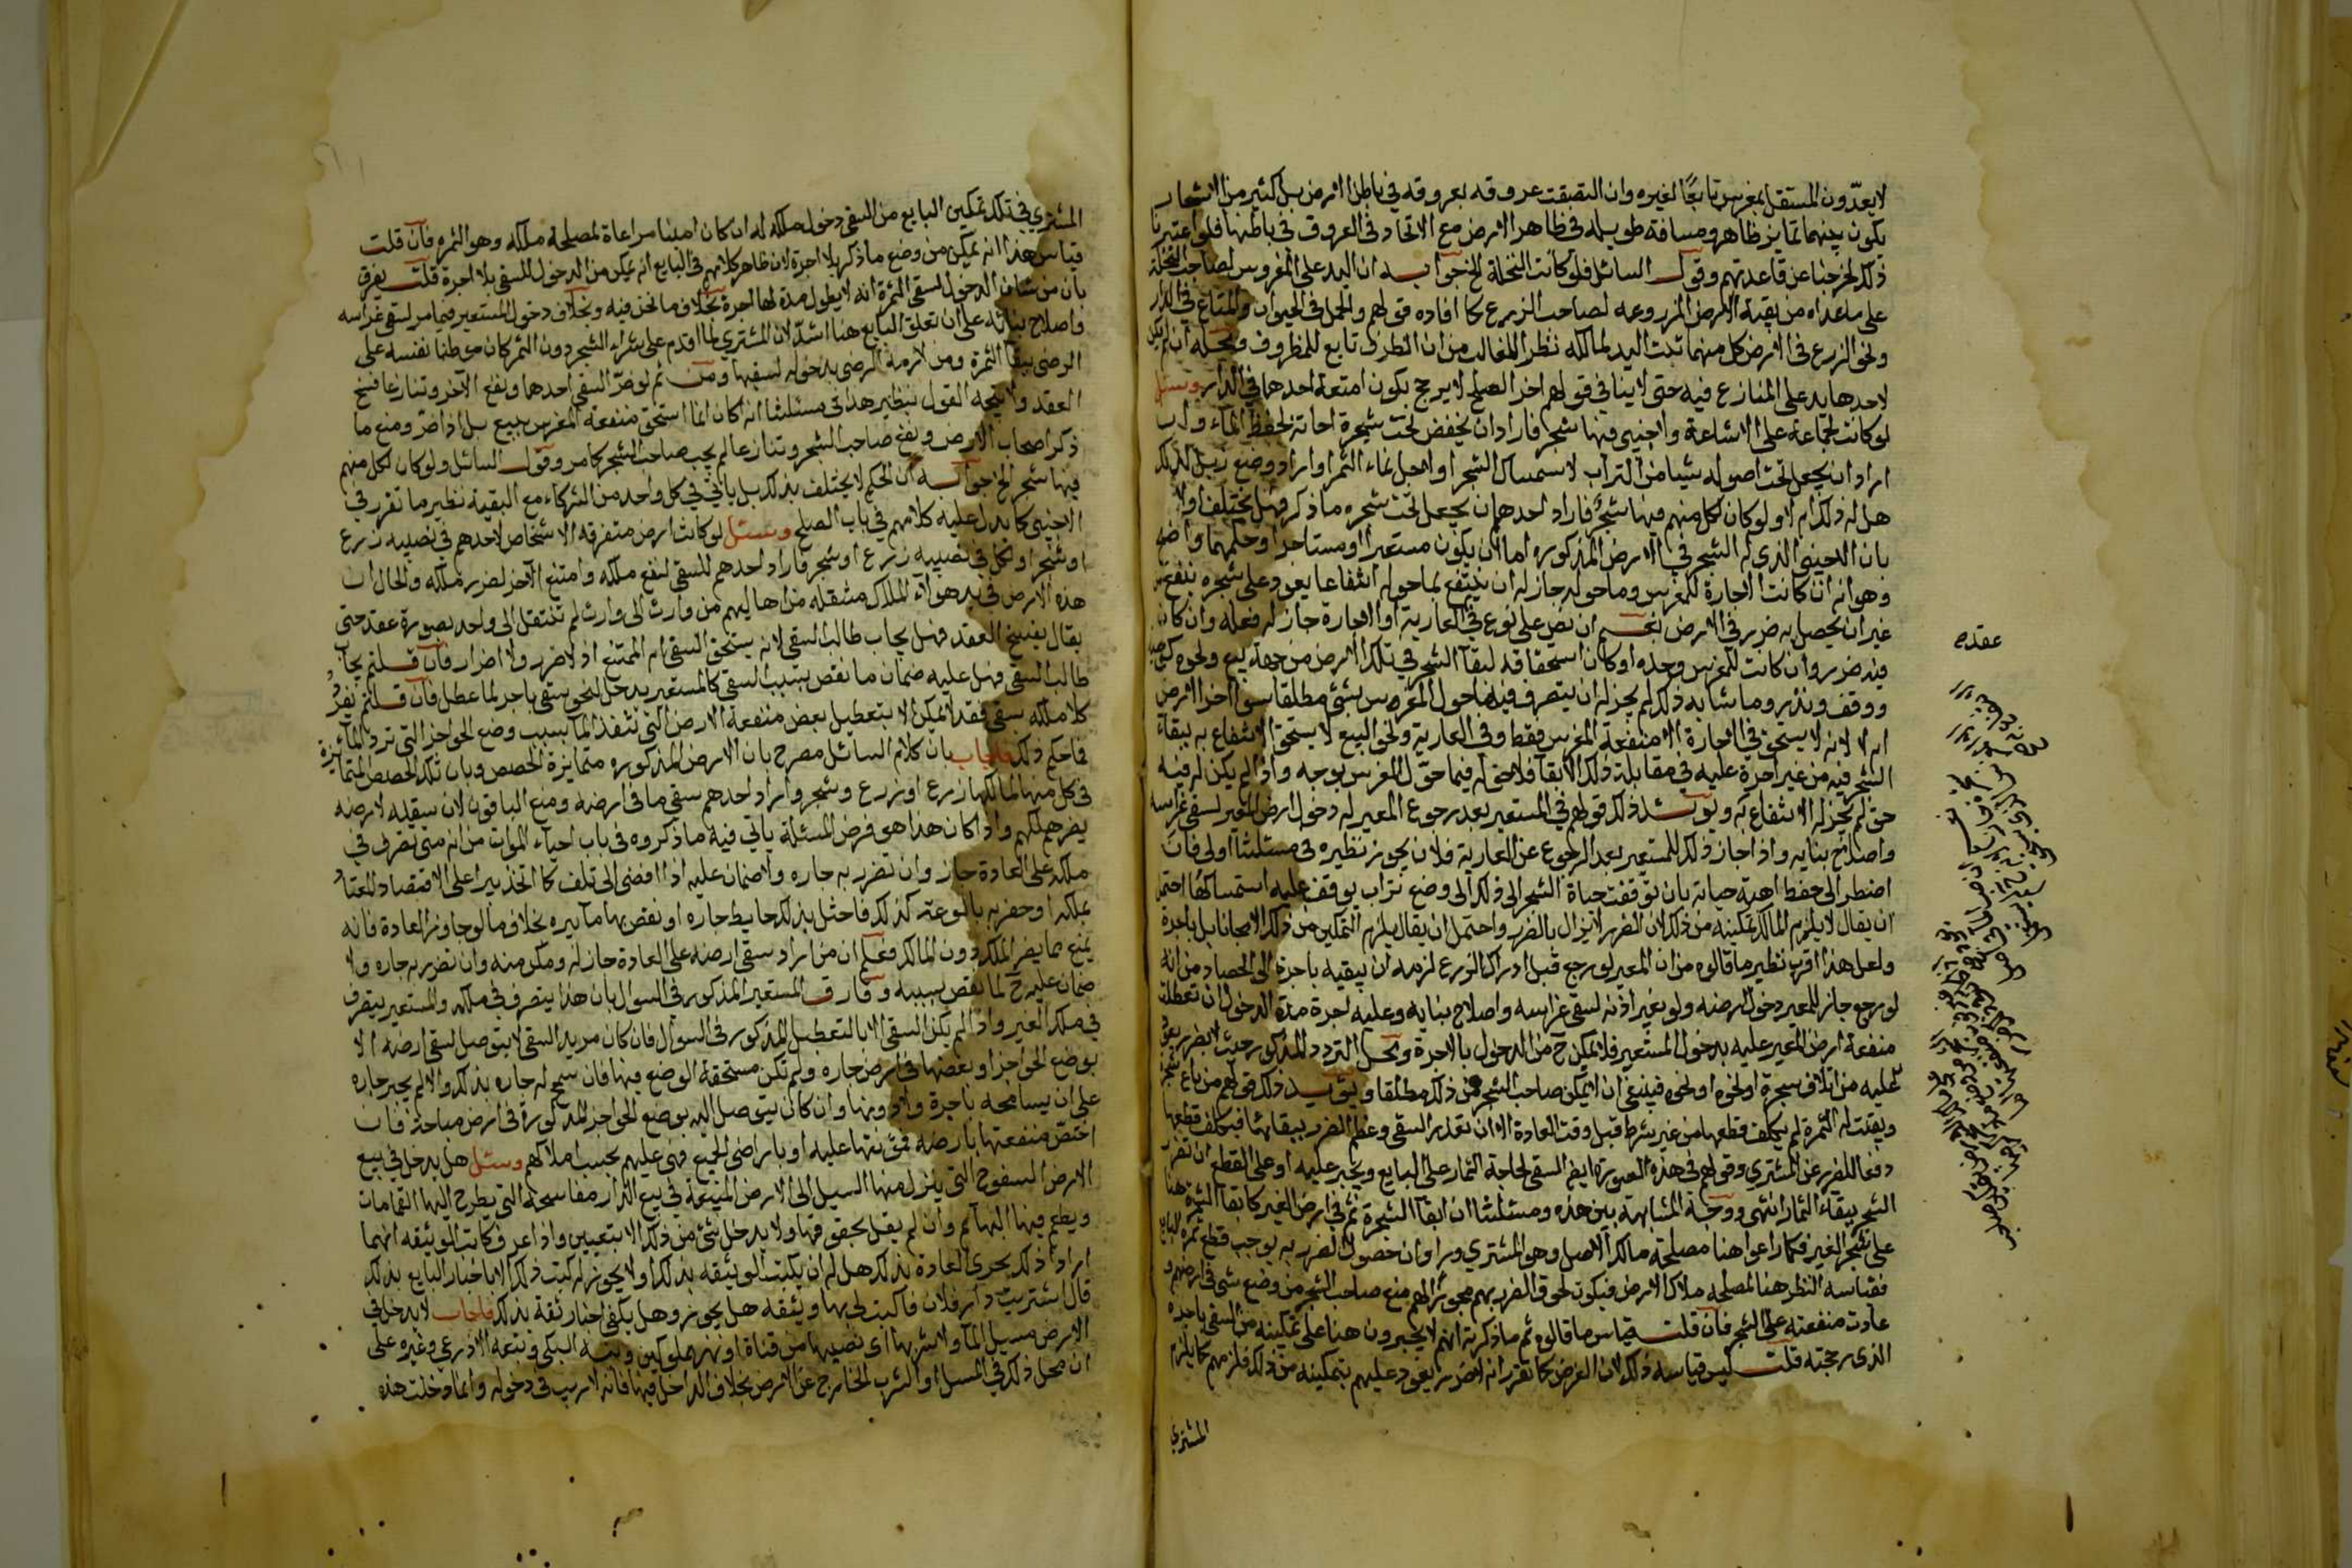 لا يعدّون المستقل بمغرس تابعًا لغيره وان التصقت عروقه بعروقه في باطن الارض بل كثير من الاشجار
يكون بينهما تمايز ظاهر ومسافة طويلة في ظاهر الارض مع الاتحاد في العروق في باطنها فلو اعتبرنا
ذلك لخرجنا عن قاعدتهم وقول السائل فلو كانت النخلة الخ جوابه ان اليد على المغروس لصاحب النخلة
على ما عداه من بقية الارض المزروعه لصاحب الزرع كما افاده قولهم والحمل في الحيوان والمتاع في الدار
ونحو الزرع في الارض كل منهما تثبت اليد لمالكه نظرا للغالب من ان الظرف تابع للمظروف ومحله ان لم يكن
لاحدهما يد على المنازع فيه حتى لا ينافي قولهم اخر الصلح لا يرجح بكون امتعة احدهما في الدار وسئل
لو كانت لجماعة على الاشاعة ولاجنبي فيها شجر فاراد ان يخفض تحت شجرة لحفظ الماء
اراد ان يجعل تحت اصوله شيئا من التراب لاستمساك الشجر او لاجل نماء الثمر او اراد وضع زبل لذلك
هل له ذلك ام لا ولو كان لكل منهم فيها شجر فاراد احدهم ان يجعل تحت شجره ما ذكر فهل يختلف او لا
بان الاجنبي الذي له الشجر في الارض المذكوره اما ان يكون مستعيرا او مستاجرا وحكمهما واضح
وهو انه ان كانت الاجارة للمغرس وما حوله جاز له ان ينتفع بما حوله انتفاعا يعود على شجره بنفع من
غير ان يحصل به ضرر في الارض نعم ان نص على نوع في العارية او الاجارة جاز له فعله وان كان
فيه ضرر وان كانت للمغرس وحده او كان استحقاقه لبقاء الشجر في تلك الارض من جهة بيع ونحوه كوصية
ووقف ونذر وما شابه ذلك لم يجز له ان يتصرف فيما حول المغرس بشئ مطلقا سوا اضر الارض
ام لا لانه لا يستحق في الاجارة الا منفعة المغرس فقط وفي العارية ونحو البيع لا يستحق الا الانتفاع به ببقاء
الشجر فيه من غير اجرة عليه في مقابلة ذلك الابقا فلا حق له فيما حول المغرس بوجه واذا لم يكن له فيه
حق لم يجز له الانتفاع به ويؤيد ذلك قولهم في المستعير بعد رجوع المعير له دخول ارض المعير لسقي غراسه
واصلاح بنايه واذا جاز ذلك للمستعير بعد الرجوع عن العارية فلان يجوز نظيره في مسئلتنا اولى فان
اضطر الى حفظ حياته بان توقفت حياة الشجر الى ذلك الى وضع تراب يوقف عليه استمساكها احتمل
ان يقال لا يلزم المالك تمكينه من ذلك لان الضرر لا يزال بالضرر واحتمل ان يقال يلزم التمكين من ذلك لا مجانا بل باجرة
ولعل هذا اقرب نظير ما قالوه من ان المعير لو رجع قبل ادراك الزرع لزمه ان يبقيه باجرة الى الحصاد من انه
لو رجع جاز للمعير دخول ارضه ولو بغير اذنه لسقي غراسه واصلاح بنايه وعليه اجرة مدة الدخول ان تعطلت
منفعة ارض المعير عليه بدخول المستعير فلا يمكن ح من الدخول الا بالاجرة ومحل التردد المذكور حيث لا ضرر يعود
عليه من اتلاف شجرة او نحوه فينبغي ان لا يمكن صاحب الشجر من ذلك مطلقا ويؤيد ذلك قولهم من باع شجرا
وبقيت له الثمرة لم يكلف قطعها من غير شرط قبل وقت العادة الا ان تعذر السقي وعظم الضرر ببقائها فيكلف قطعها
دفعا للضرر عن المشتري وقولهم في هذه الصورة ايضا السقي لحاجة الثمار على البايع ويجبر عليه او على القطع ان تضرر
الشجر ببقاء الثمار انتهى ووجه المشابهة بين هذه ومسئلتنا ان ابقا الشجرة ثم في ارض الغير كابقا الثمرة هنا
على شجر الغير فكما راعوا هنا مصلحة مالك الاصل وهو المشتري وراوا ان حصول الضرر به يوجب قطع ثمرة البايع
فقياسه النظر هنا لمصلحة ملاك الارض فيكون لحوق الضرر بهم مجوزا لهم منع صاحب الشجر من وضع شئ في ارضهم و
عادت منفعته على الشجر فان قلت قياس ما قالوه ثم ما ذكرته انهم لا يجبرون هنا على تمكينه من السقي باجرة
الذي رجحته قلت ليس قياسه ذلك لان الغرض كما تقرر انه لا ضرر يعود عليهم بتمكينه من ذلك فلزمهم كما يلزم
المشتري
عقده
المشتري في تلك تمكين البايع من السقي دخول ملكه له ان كان امينا مراعاة لمصلحة ملكه وهو الثمره فان قلت
قياس هذا انه يمكن من وضع ما ذكر بلا اجرة لان ظاهر كلامهم في البايع انه يمكن من الدخول للسقي بلا اجرة قلت يفرق
بان من شان الدخول لسقي الثمرة انه لا يطول مدة لها اجرة بخلاف ما نحن فيه وبخلاف دخول المستعير فيما مر لسقي غراسه
واصلاح بنائه على ان تعلق البايع هنا اشد لان المشتري لما اقدم على شراء الشجر دون الثمر كان موطنا نفسه على
الرضى ببقا الثمرة ومن لازمه الرضى بدخوله لسقيها ومن ثم لو ضر السقي احدهما ونفع الآخر وتنازعا فسخ
العقد ولا يتجه القول بنظير هذا في مسئلتنا انه كان انما استحق منفعة المغرس ببيع بل اذا ضر ومنع ما
ذكر اصحاب الارض ونفع صاحب الشجر وتنازعا لم يجب صاحب الشجر كما مر وقول السائل ولو كان لكل منهم
فيها شجر الخ جوابه ان الحكم لا يختلف بذلك بل ياتي في كل واحد من الشركاء مع البقية نظير ما تقرر في
الاجنبي كما يدل عليه كلامهم في باب الصلح وسئل لو كانت ارض متفرقة لاشخاص لاحدهم في نصيبه زرع
او شجر او لكل في نصيبه زرع او شجر فاراد احدهم السقي لنفع ملكه وامتنع الآخر لضرر ملكه والحال ان
هذه الارض في يد هولآء الملاك منتقلة من اهاليهم من وارث الى وارث لم تنتقل الى واحد بصورة عقد حتى
يقال يفسخ العقد فهل يجاب طالب السقي لانه يستحق السقي ام الممتنع اذ لا ضرر ولا اضرار فان قلتم يجاب
طالب السقي فهل عليه ضمان ما نقص بسبب السقي كالمستعير يدخل لنحو سقي باجر لما عطل فان قلتم يفرق
كلا ملكه يسقي فقد لا يمكن الا بتعطيل بعض منفعة الارض التي تنفذ الما بسبب وضع الحواجز التي ترد الماء
فما حكم ذلك فاجاب بان كلام السائل مصرح بان الارض المذكوره متمايزة الحصص وبان تلك الحصص المتمايزة
في كل منها لمالكها زرع او زرع وشجر واراد احدهم سقي ما في ارضه ومنع الباقون لان سقيه لارضه
يضر ملكهم واذا كان هذا هو فرض المسئلة ياتي فيه ما ذكروه في باب احياء الموات من انه متى تصرف في
ملكه على العادة جاز وان تضرر به جاره ولا ضمان عليه اذا افضى الى تلف كما اتخذ بيرا على الاقتصاد المعتاد
بملكه او حفر به بالوعة كذلك فاختل بذلك حايط جاره او نقص بها ماء بيره بخلاف ما لو جاوز العادة فانه
يمنع مما يضر الملك دون المالك فعلم ان من اراد سقي ارضه على العادة جاز له ومكن منه وان تضرر به جاره ولا
ضمان عليه ح لما نقص بسببه وفارق المستعير المذكور في السوال بان هذا يتصرف في ملكه والمستعير يتصرف
في ملك الغير واذا لم يمكن السقي الا بالتعطيل المذكور في السوال فان كان مريد السقي لا يتوصل لسقي ارضه الا
بوضع الحواجز او بعضها في ارض جاره ولم تكن مستحقة الوضع فيها فان سمح له جاره بذلك والا لم يجبر جاره
على ان يسامحه باجرة ولا دونها وان كان يتوصل اليه بوضع الحواجز المذكورة في ارض مباحة فان
اختص منفعتها بارضه فمؤنتها عليه او باراضي الجميع فهي عليهم بحسب املاكهم وسئل هل يدخل في بيع
الارض السفوح التي ينزل منها السيل الى الارض المبيعة في بيع الدار مفاسحه التي يطرح اليها القمامات
ويطعم فيها البهائم وان لم يقل بحقوقها ولا يدخل شئ من ذلك الا بتعيين واذا عرف كاتب الوثيقه انهما
ارادا ذلك بجرى العادة بذلك هل له ان يكتب الوثيقه بذلك او لا يجوز له كتب ذلك الا باخبار البايع بذلك
قال اشتريت دار فلان فاكتب لي بها وثيقه هل يجوز وهل يكفي اخبار ثقة بذلك فاجاب لا يدخل في
الارض مسيل الماء ولا شربها اي نصيبها من قناة او نهر مملوكين وتبعه الاذرعي وغيره على
ان محل ذلك في المسيل او الشرب الخارج عن الارض بخلاف الداخل فيها فانه لا ريب في دخوله وانما دخلت هذه